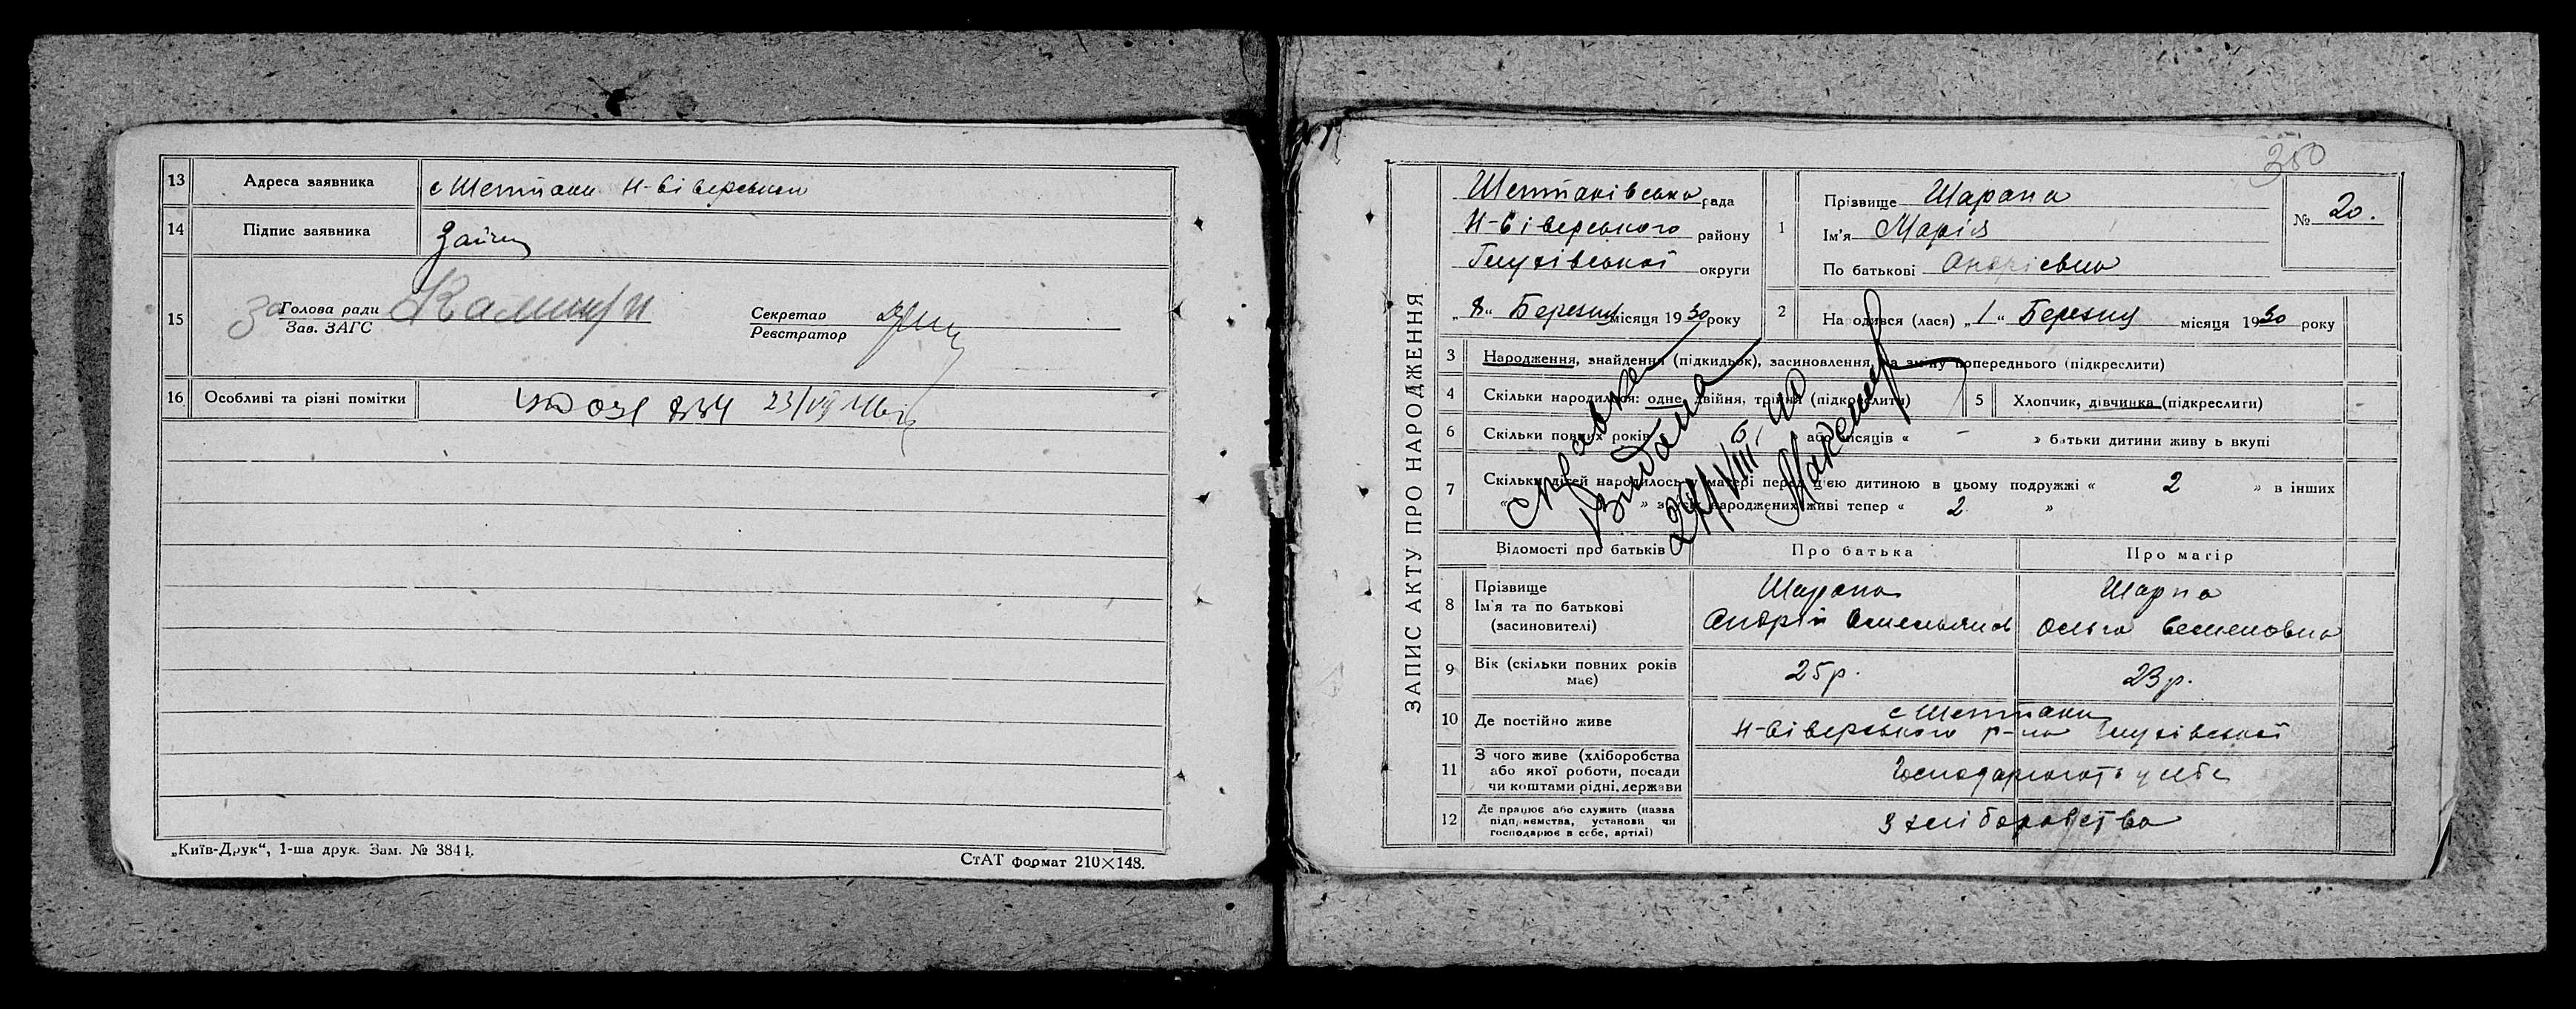 13 Адреса заявника с Шептаки Н-Сіверського
14 Підпис заявника
15 за Голова ради
Зав. ЗАГС
Секретар
Реєстратор
16 Особливі та різні помітки
„Київ-Друк“, 1-ша друк. Зам. № 3841.
СтАТ формат 210×148.
350
ЗАПИС АКТУ ПРО НАРОДЖЕННЯ
Шептаківська рада
Н-Сіверського району
Глухівської округи
„8“ Березня місяця 1930 року
1 Прізвище Шарапа
Ім'я Марія
По батькові Андрієвна
№ 20.
2 Народився (лася) „1“ Березня місяця 1930 року
3 Народження, знайдення (підкидьок), засиновлення, на зміну попереднього (підкреслити)
4 Скільки народилося: одне, двійня, трійня (підкреслити)
5 Хлопчик, дівчинка (підкреслити)
6 Скільки повних років або місяців « – » батьки дитини живуть вкупі
7 Скільки дітей народилось у матері перед цією дитиною в цьому подружжі « 2 » в інших
« » з них народжених живі тепер « 2 »
справка
видана
Відомості про батьків
Про батька
Про матір
8 Прізвище
Ім'я та по батькові
(засиновителі)
Шарапа
Андрій Омельянов
Шарпа
Ольга Семеновна
9 Вік (скільки повних років
має)
25р.
23р.
10 Де постійно живе
с Шептаки
Н-Сіверського р-на Глухівської
11 З чого живе (хліборобства
або якої роботи, посади
чи коштами рідні, держави
господарюють у себе
12 Де працює або служить (назва
підприємства, установи чи
господарює в себе, артілі)
З хліборобства